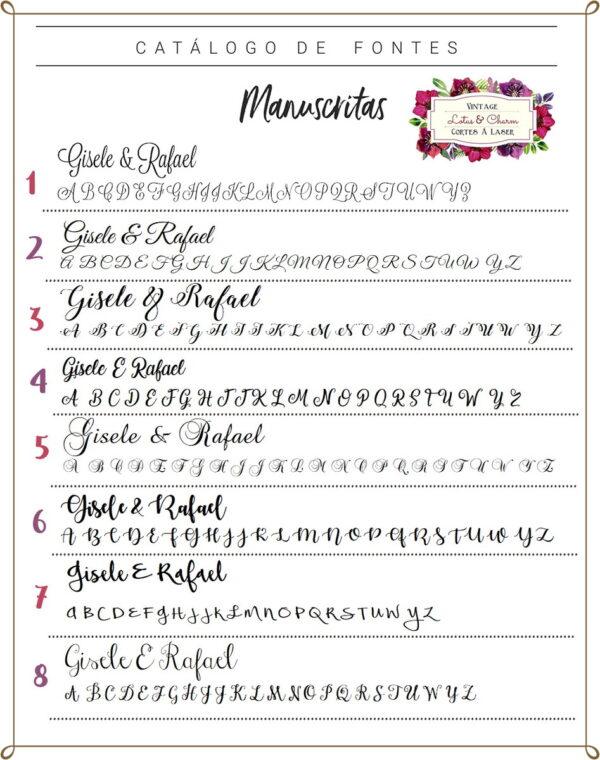 CATÁLOGO DE FONTES
Manuscritas
VINTAGE
Lotus & Charm
CORTES À LASER
Gisele & Rafael
1
A B C D E F G H I J K L M N O P Q R S T U W Y Z
Gisele & Rafael
2
A B C D E F G H I J K L M N O P Q R S T U W Y Z
Gisele & Rafael
3
A B C D E F G H I J K L M N O P Q R S T U W Y Z
Gisele & Rafael
4
A B C D E F G H I J K L M N O P Q R S T U W Y Z
Gisele & Rafael
5
A B C D E F G H I J K L M N O P Q R S T U W Y Z
Gisele & Rafael
6
A B C D E F G H I J K L M N O P Q R S T U W Y Z
Gisele & Rafael
7
A B C D E F G H I J K L M N O P Q R S T U W Y Z
Gisele & Rafael
8
A B C D E F G H I J K L M N O P Q R S T U W Y Z